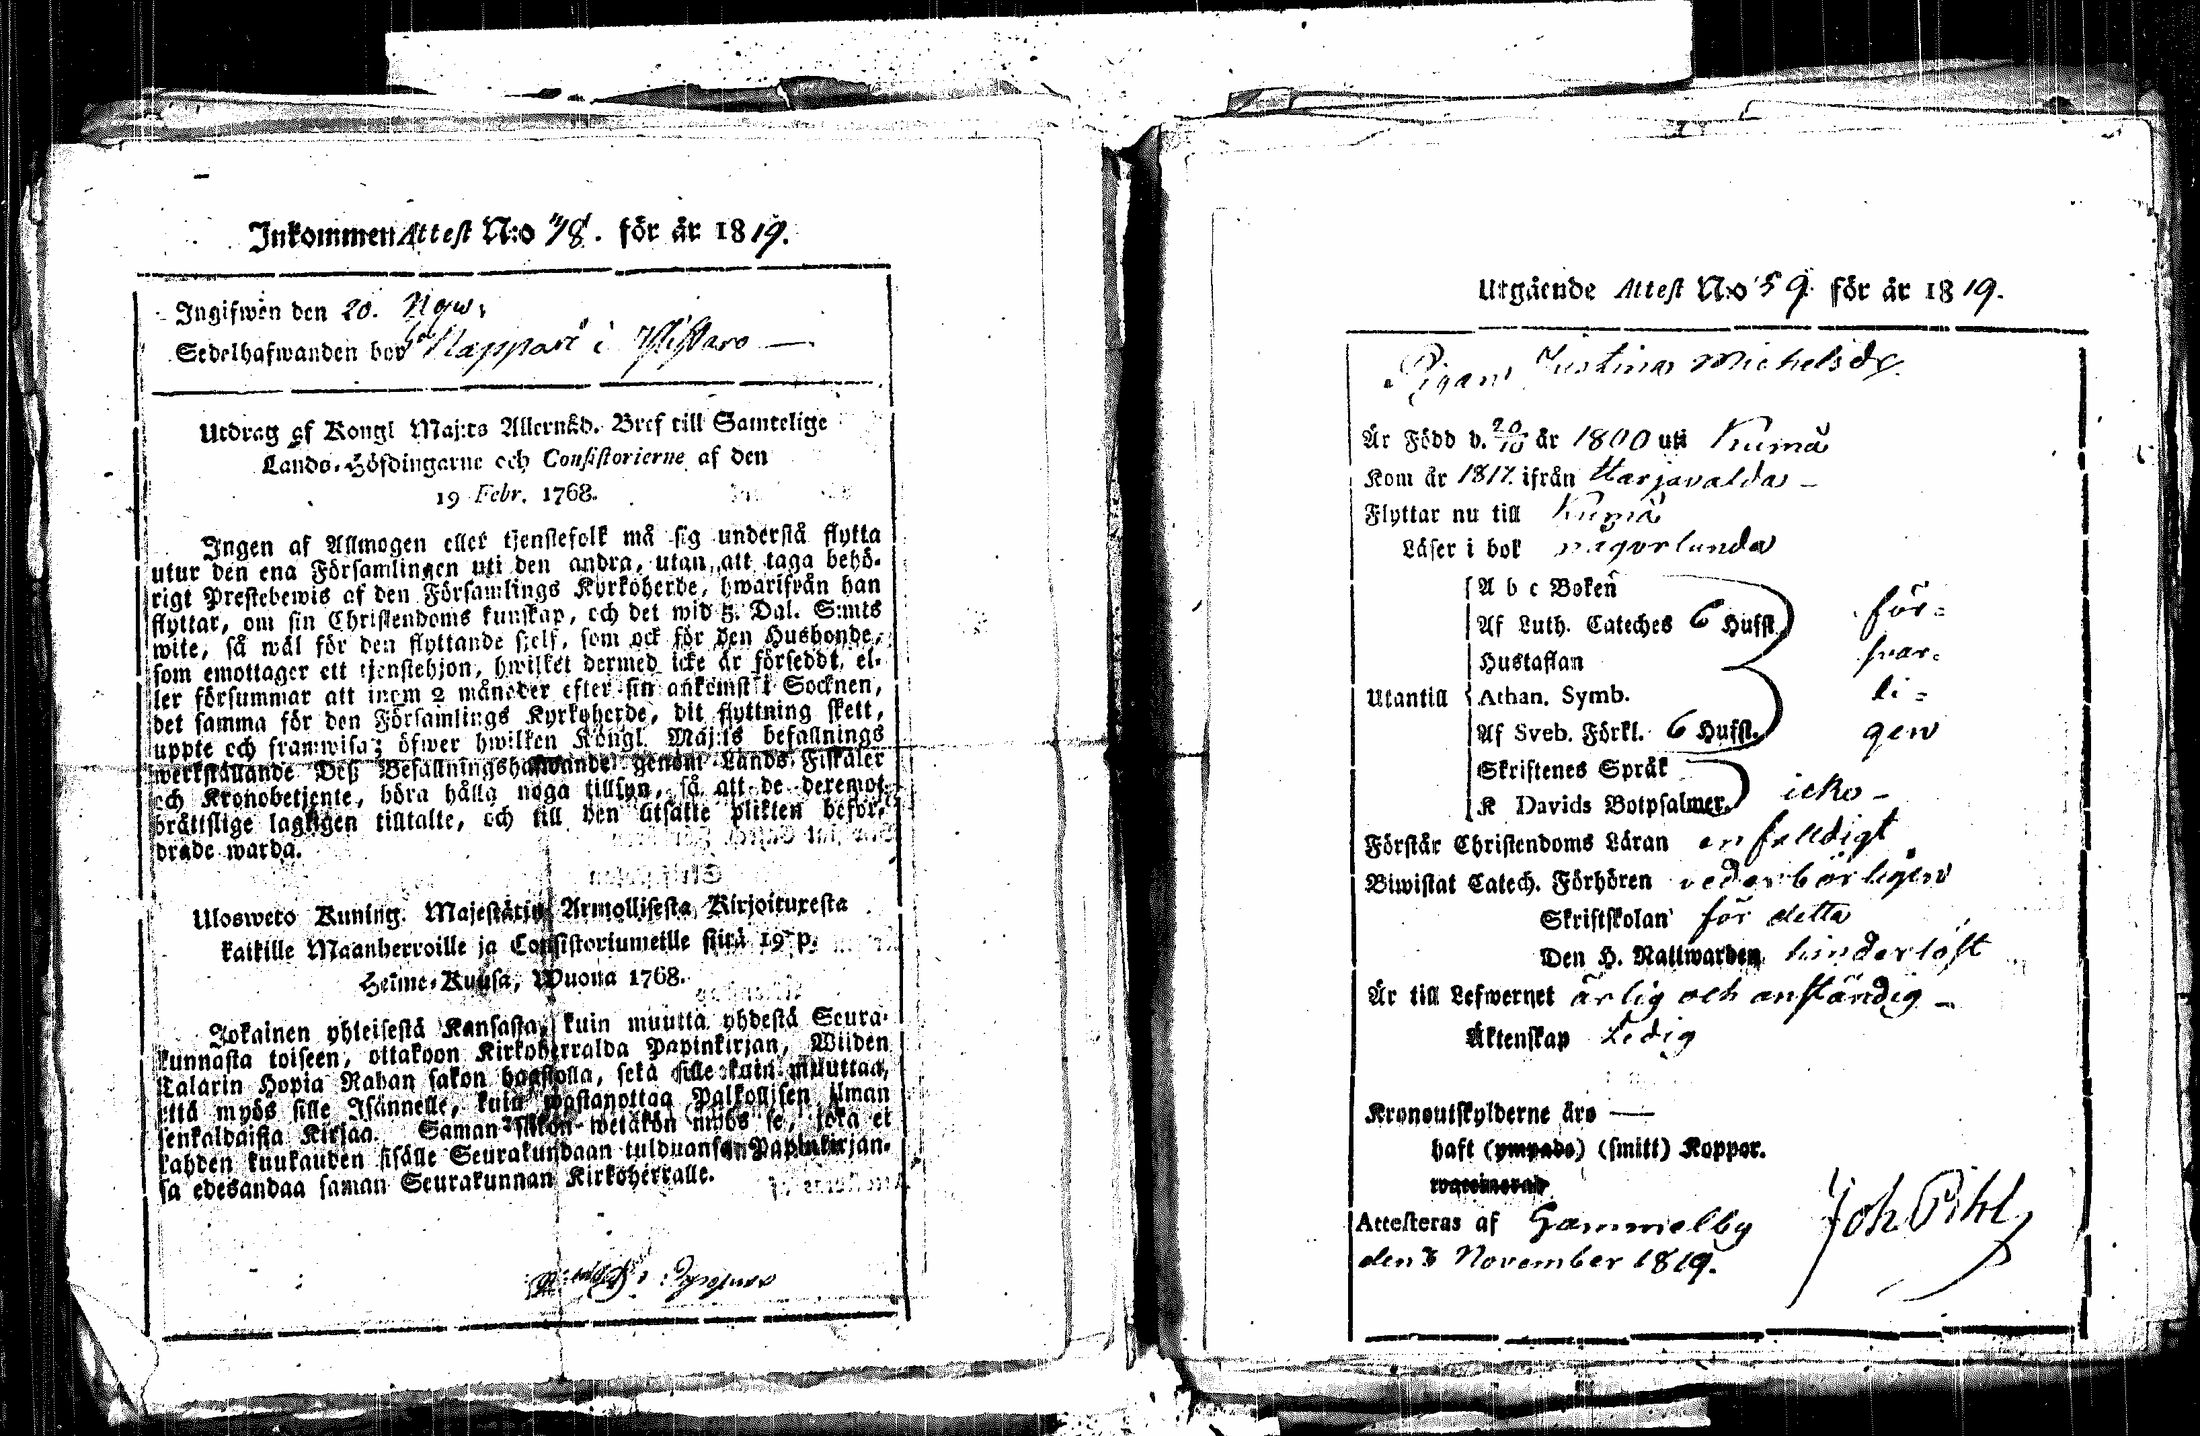 Inkommen Attest N:o 78. för år 1819.
Ingifwen den 20. Nov.
Sedelhafwanden bor Nappari i
Utdrag af Kongl Maj:ts Allernåd. Bref till Samtelige
Lands-Höfdingarne och Consistorierne af den
19 Febr. 1768.
Ingen af Allmogen eller tjenstefolk må sig understå flytta
utur den ena Församlingen uti den andra, utan att taga behö-
rigt Prestebewis af den Församlings Kyrkoherde, hwarifrån han
flyttar, om sin Christendoms kunskap, och det wid 5. Dal. S:mts
wite, så wäl för den flyttande sjelf, som ock för den Husbonde,
som emottager ett tjenstehjon, hwilket dermed icke är försedt, el-
ler försummar att inom 2 månader efter sin ankomst i Socknen,
det samma för den Församlings Kyrkoherde, dit flyttning skett,
uppte och framwisa; öfwer hwilken Kongl. Maj:ts befallnings
werkställande Deß Befallningshafwande genom Lands Fiskaler
och Kronobetjente, böra hålla noga tillsyn, så att de deremot
brättslige lagligen tilltalte, och till den utsatte plikten befor-
drade warda.
Ulosweto Kuning. Majestätin Armollisesta Kirjoituxesta
kaikille Maanherroille ja Consistoriumeille siitä 19 p.
Helme-Kuusa, Wuona 1768.
Jokainen yhteisestä Kansasta, kuin muutta yhdestä Seura-
kunnasta toiseen, ottakoon Kirkoherralda Papinkirjan, Wiiden
Talarin Hopia Rahan sakon haastolla, sekä sille kuin muuttaa,
että myös sille Isännelle, kuin wastanottaa Palkollisen ilman
senkaldaista Kirjaa. Saman sakon wetäkön myös se, joka ei
kahden kuukauden sisälle Seurakundaan tulduansa Papinkirjan-
sa edesandaa saman Seurakunnan Kirkoherralle.
Utgående Attest N:o 59 för år 1819.
Pigan Justina Michelsdr
Är Född d. 20/10 år 1800 uti Kumå
Kom år 1817. ifrån Harjavalda -
Flyttar nu till Kumå
Läser i bok någorlunda
A b c Boken
Af Luth. Cateches 6 Hufst. för-
Hustaflan svar-
Utantill Athan. Symb. li-
Af Sveb. Förkl. 6 Hufst. gen
Skriftenes Språk
K Davids Botpsalmer. icke -
Förstår Christendoms Läran enfalldigt
Biwistat Catech. Förhören vederbörligen
Skriftskolan för detta
Den H. Nattwarden hinderlöst
Är till Lefwernet ärlig och anständig -
Äktenskap Ledig
Kronoutskylderne äro —
haft (ympade) (smitt) Koppor.
Attesteras af Gammelby Joh Pihl
den 3 November 1819.